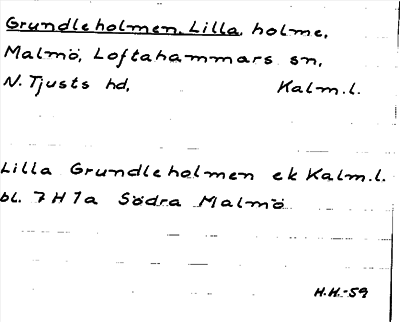 Grundleholmen, Lilla, holme,
Malmö, Loftahammars sn,
N. Tjusts hd, Kalm.l.
Lilla Grundleholmen ek Kalm.l.
bl. 7 H 1a Södra Malmö
H.H.-59